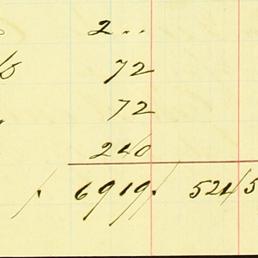 2 ..
72
72
240
6919 5245